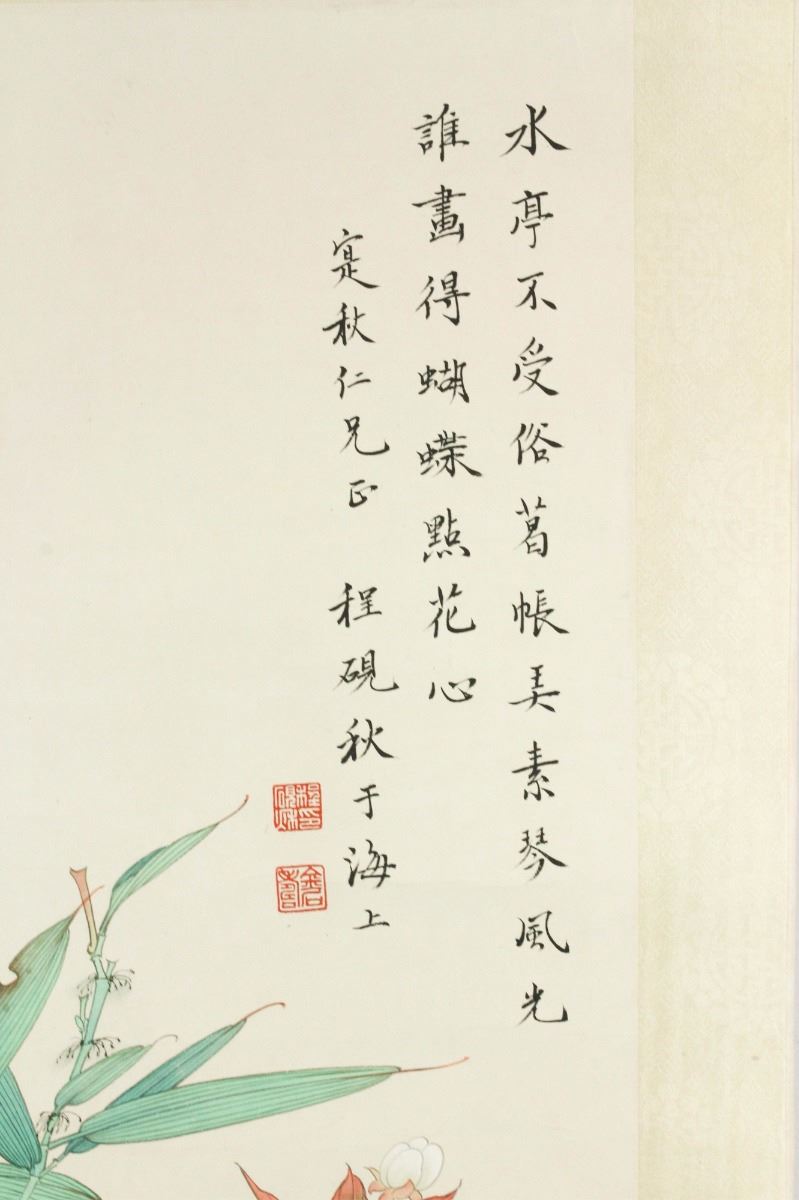 水亭不受俗葛帳美素琴風光
誰畫得蝴蝶點花心
寔秋仁兄正 程硯秋于海上
程印硯秋